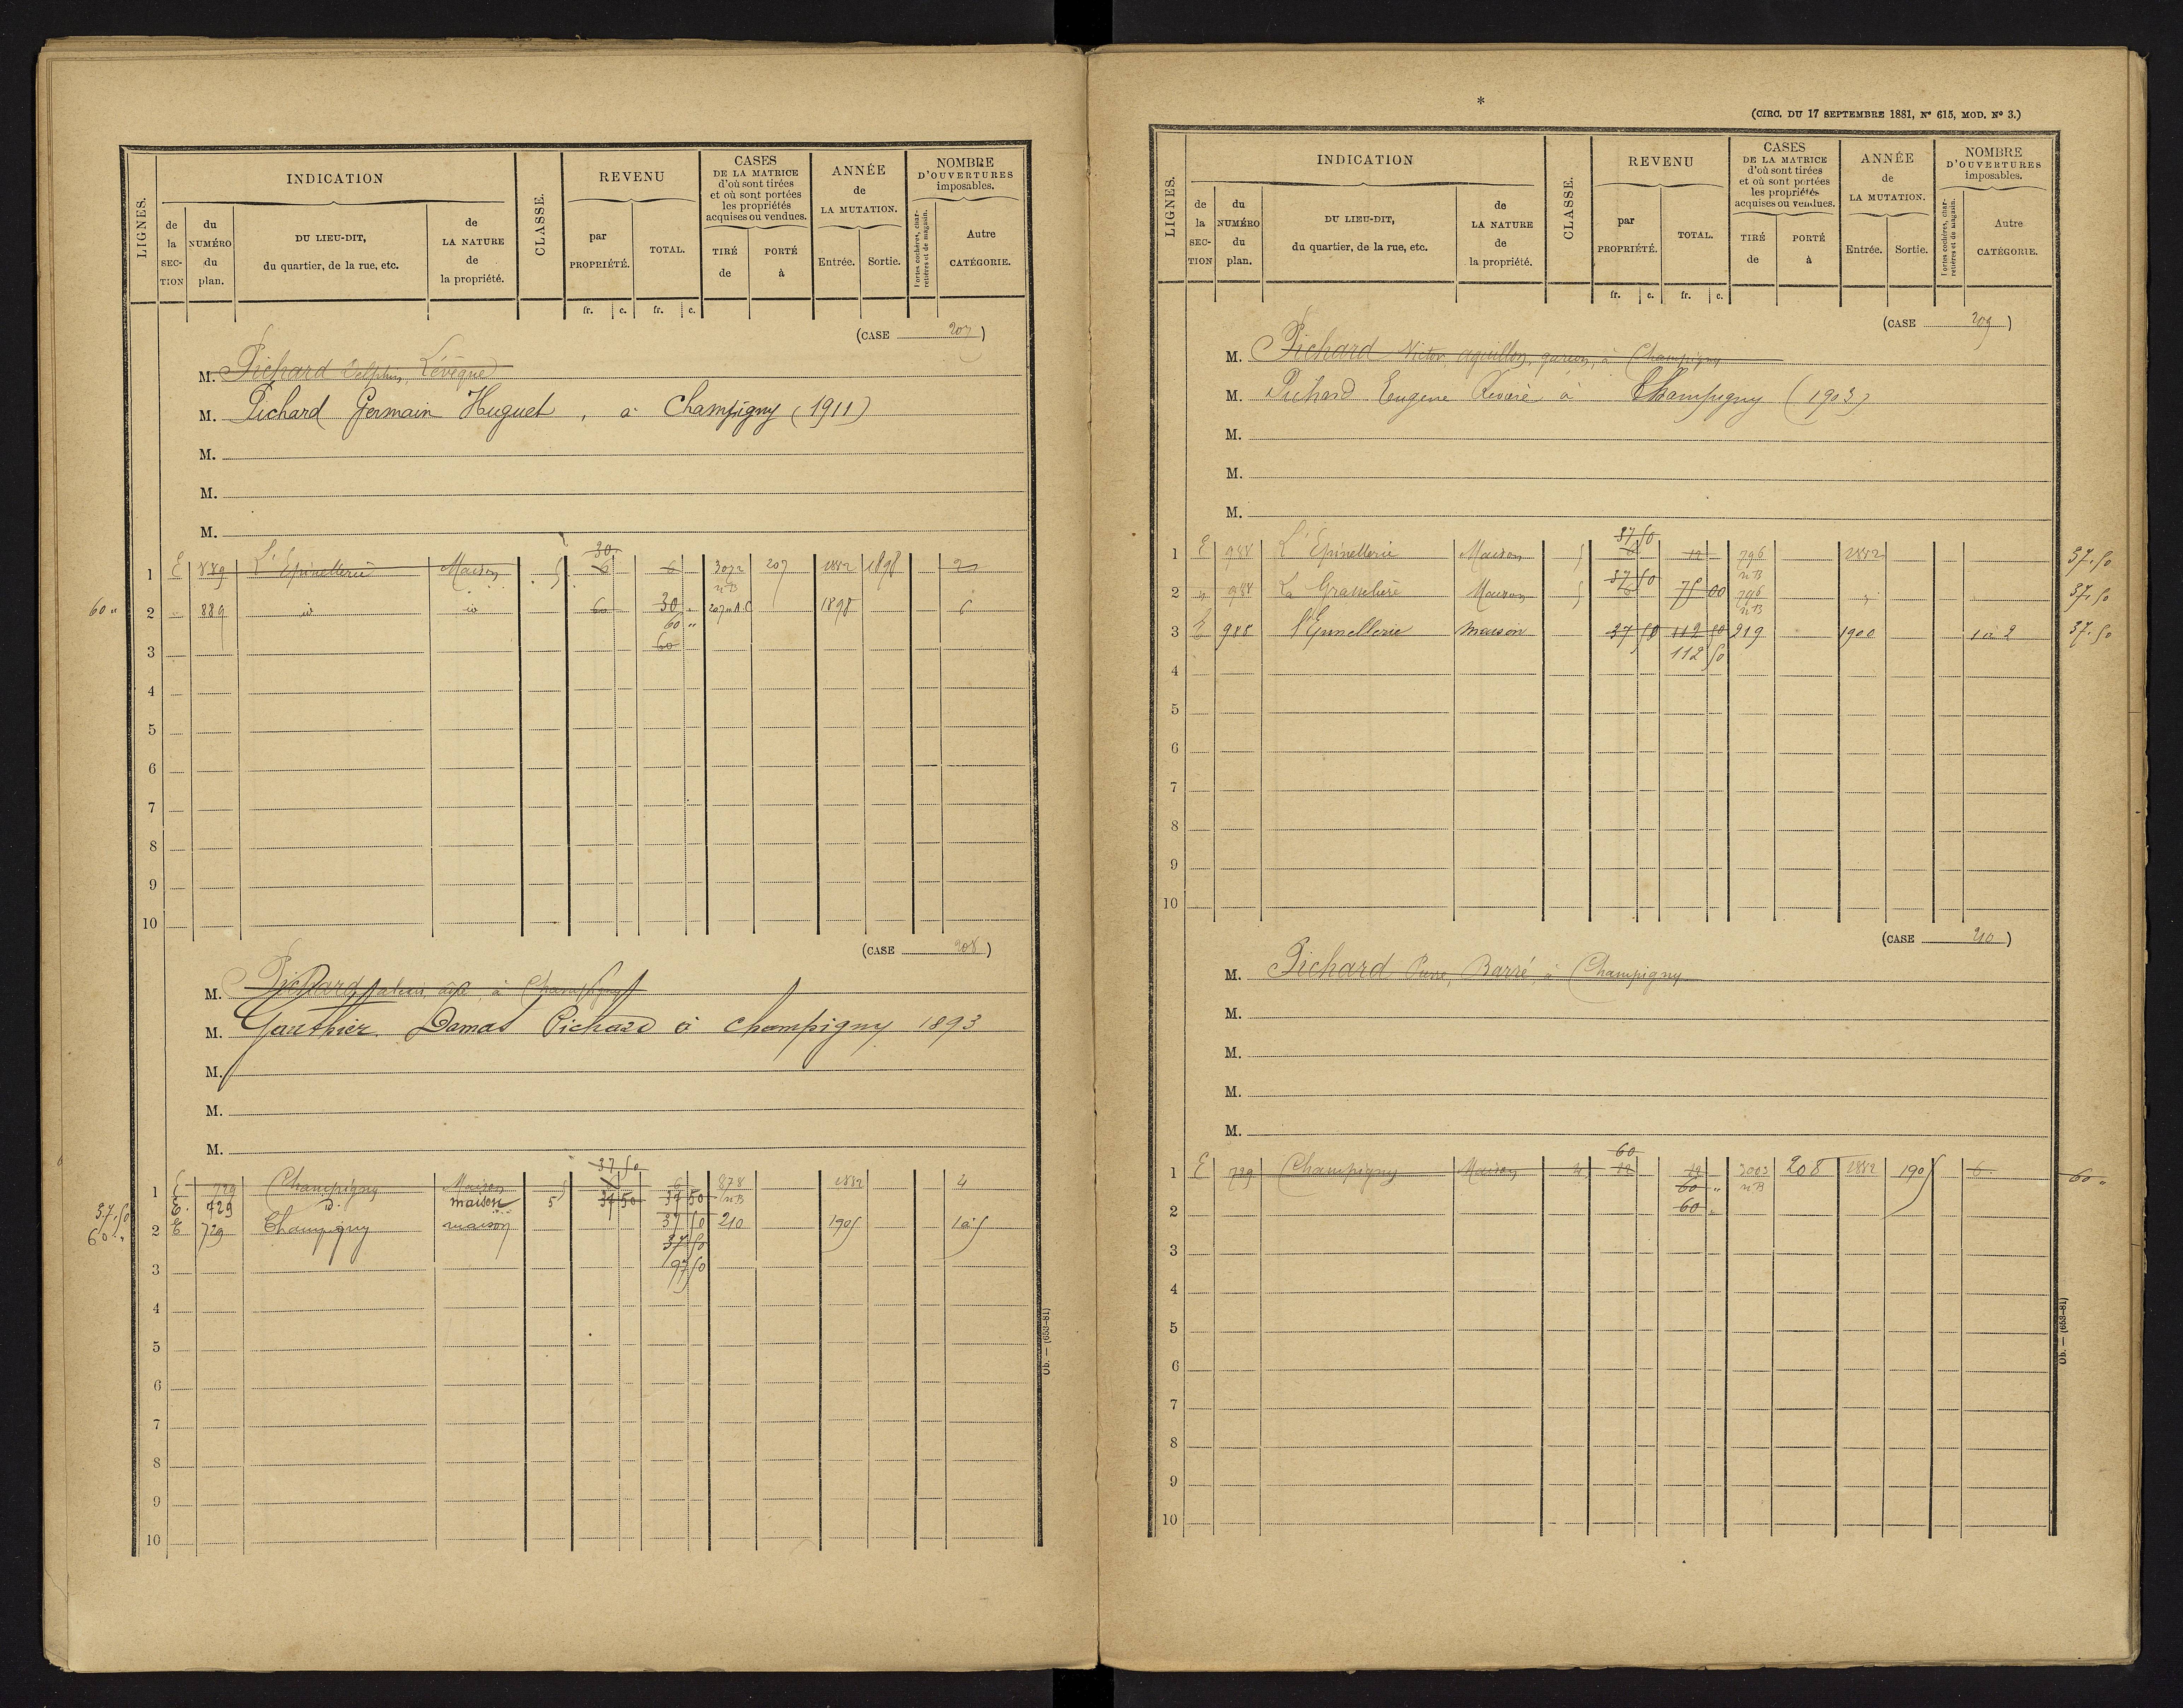 LIGNES.
INDICATION
de la SECTION
du NUMÉRO du plan.
DU LIEU-DIT, du quartier, de la rue, etc.
de LA NATURE de la propriété.
CLASSE.
REVENU
par PROPRIÉTÉ.
TOTAL.
CASES DE LA MATRICE d'où sont tirées et où sont portées les propriétés acquises ou vendues.
TIRÉ de
PORTÉ à
ANNÉE de LA MUTATION.
Entrée.
Sortie.
NOMBRE D'OUVERTURES imposables.
Portes cochères, charretières et de magasin.
Autre CATÉGORIE.
fr. c. fr. c.
(CASE 207)
M. Pichard Delphin, Lévêque
M. Pichard Germain Huguet, à Champigny (1911)
M.
M.
M.
30
1 E 889 L'Epinellerie Maison 5 6 6 3072 207 1882 1898 2
nB
60 " 2 " 889 id id 60 30 " 207 n.B.C 1898 6
60 "
3 60
4
5
6
7
8
9
10
(CASE 208)
M. Pichard à Champigny
M. Gauthier Damas Pichard à Champigny 1893
M.
M.
M.
37 50
1 E 729 Champigny Maison 5 6 878 1882 4
E. 729 id. maison 5 37 50 37 50 nB
37.50
60 " 2 E 729 Champigny maison 37 50 210 1905 1 à 5
37 50
3 97 50
4
5
6
7
8
9
10
Ob. — (653-81)
*
(CIRC. DU 17 SEPTEMBRE 1881, N° 615, MOD. N° 3.)
LIGNES.
INDICATION
de la SECTION
du NUMÉRO du plan.
DU LIEU-DIT, du quartier, de la rue, etc.
de LA NATURE de la propriété.
CLASSE.
REVENU
par PROPRIÉTÉ.
TOTAL.
CASES DE LA MATRICE d'où sont tirées et où sont portées les propriétés acquises ou vendues.
TIRÉ de
PORTÉ à
ANNÉE de LA MUTATION.
Entrée.
Sortie.
NOMBRE D'OUVERTURES imposables.
Portes cochères, charretières et de magasin.
Autre CATÉGORIE.
fr. c. fr. c.
(CASE 209)
M. Pichard Victor, Aguillon, garçon, à Champigny
M. Pichard Eugene Rivière à Champigny (1903)
M.
M.
M.
37 50
1 E 988 L'Epinellerie Maison 5 6 12 796 1882 37.50
37 50 nB
2 " 988 La Maison 5 6 75 00 796 " 37.50
nB
3 E 988 l'Epinellerie maison 37 50 112 50 219 1900 1 à 2 37.50
112 50
4
5
6
7
8
9
10
(CASE 210)
M. Pichard Pierre, Barré, à Champigny
M.
M.
M.
M.
60
1 E 729 Champigny Maison 4 12 12 3003 208 1882 1905 6 60 "
60 " nB
2 60 "
3
4
5
6
7
8
9
10
Ob. — (653-81)